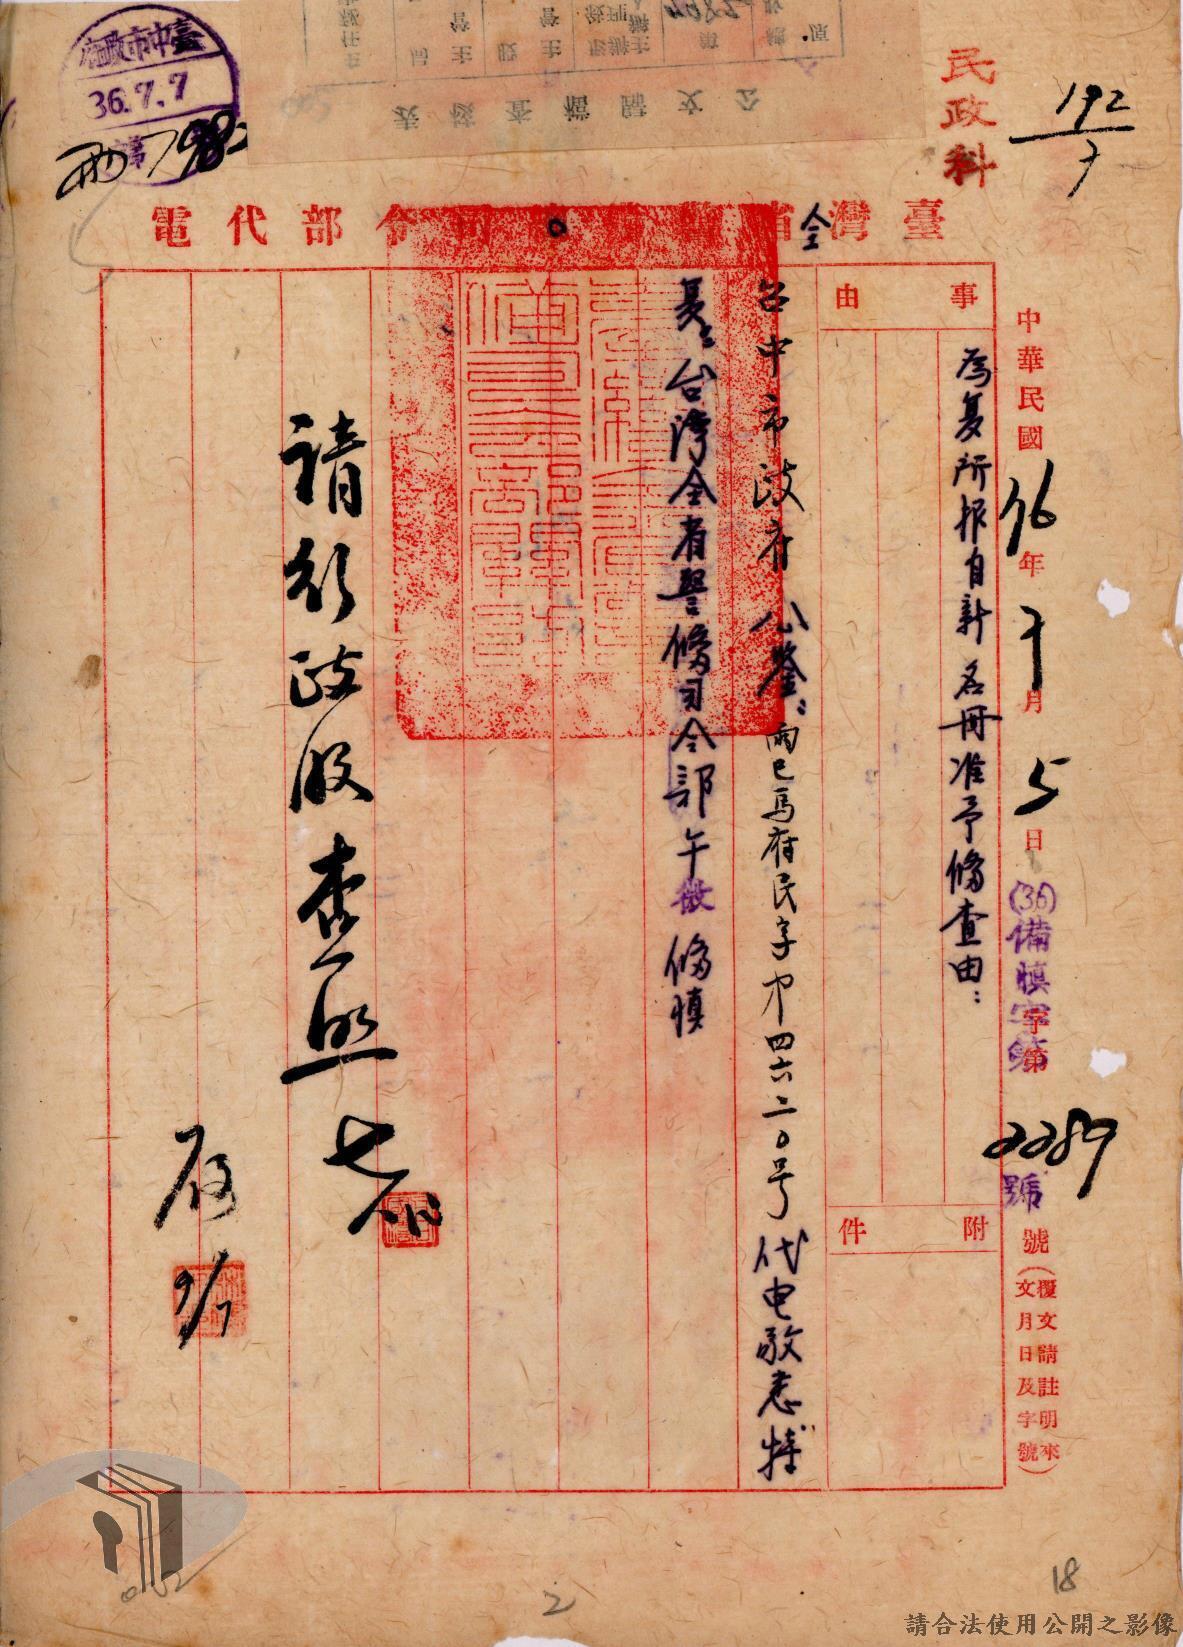 臺中市政府
36.7.7
民政科
192/7
臺灣全省警備司令部代電
中華民國36年7月5日
(36)備慎字第2289號
號(覆文請註明來文月日及字號)
事由
為复所报自新名冊准予俻查由：
附件
台中市政府公鉴：雨巳馬府民字第四六二〇号代电敬悉特
复。台湾全省警俻司令部午微俻慎
請行政股查照
9/7
公文歸檔查核表
2
18
請合法使用公開之影像